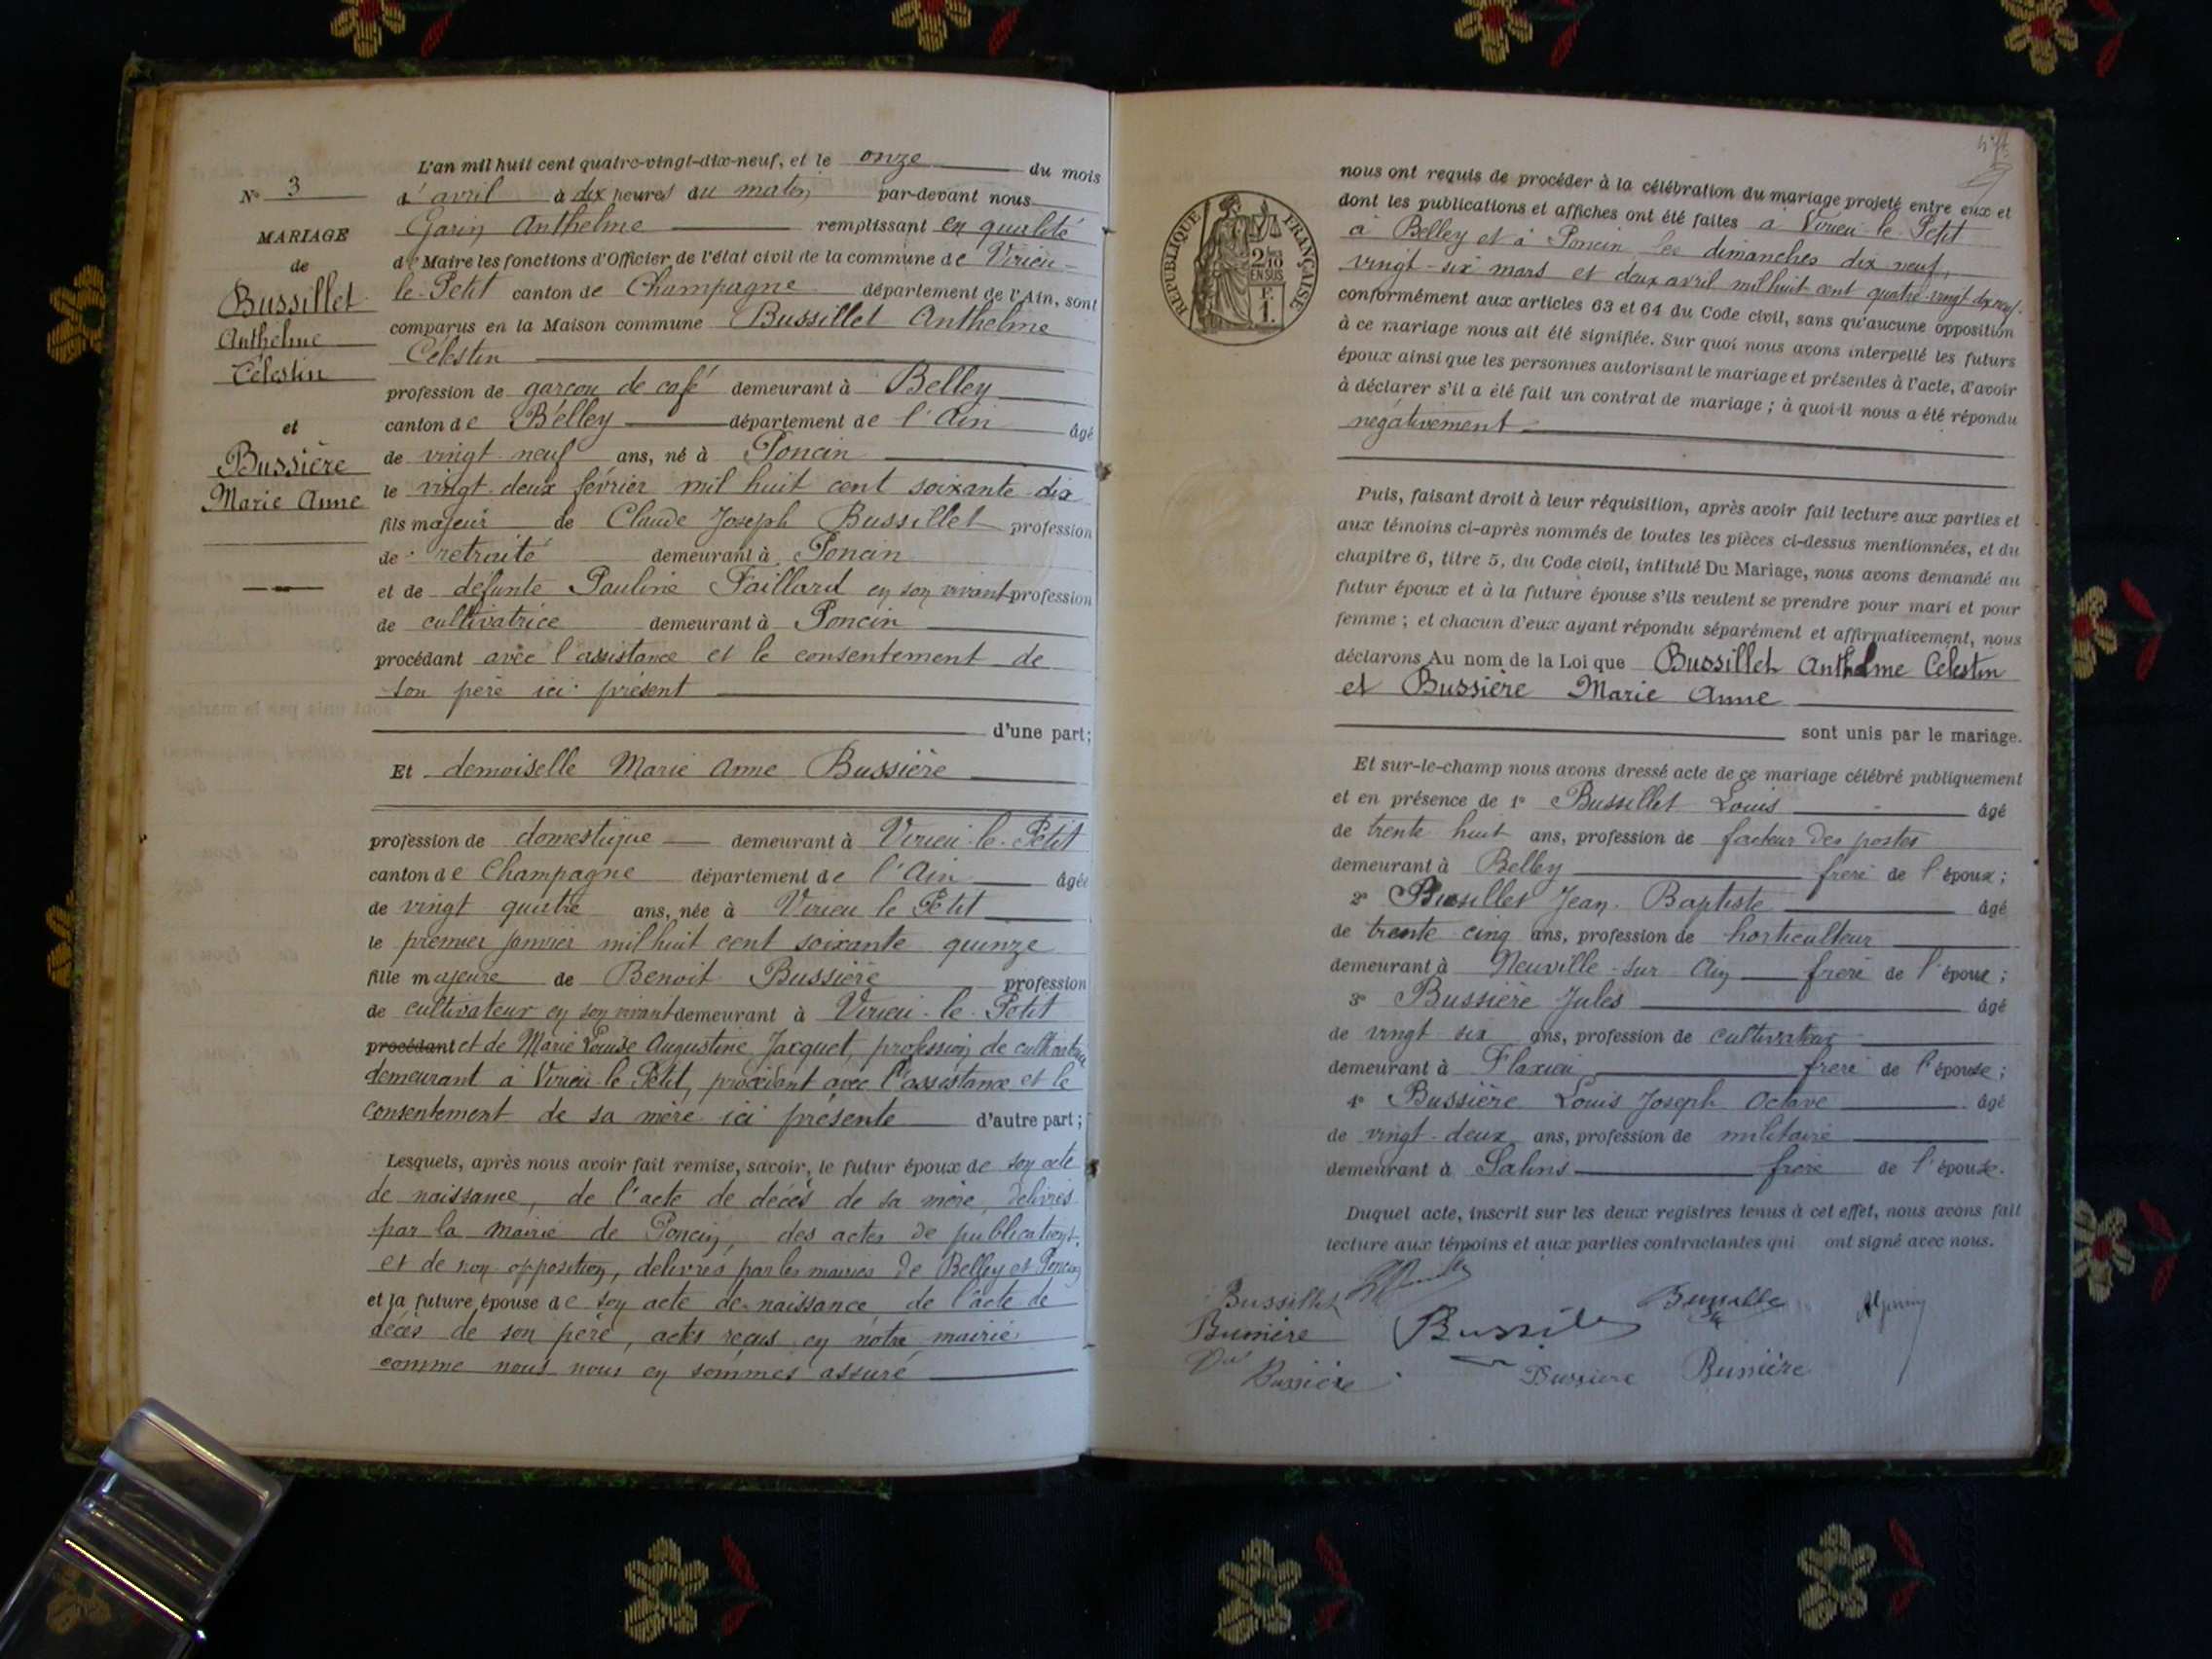 N° 3
MARIAGE
de
Bussillet
Anthelme
Célestin
et
Bussière
Marie Anne
L'an mil huit cent quatre-vingt-dix-neuf, et le onze du mois
d'avril à dix heures du matin par-devant nous
Garin Anthelme remplissant en qualité
de Maire les fonctions d'Officier de l'état civil de la commune de Virieu-
le-Petit canton de Champagne département de l'Ain, sont
comparus en la Maison commune Bussillet Anthelme
Célestin
profession de garçon de café demeurant à Belley
canton de Belley département de l'Ain âgé
de vingt-neuf ans, né à Poncin
le vingt-deux février mil huit cent soixante-dix
fils majeur de Claude Joseph Bussillet profession
de retraité demeurant à Poncin
et de défunte Pauline Paillard en son vivant profession
de cultivatrice demeurant à Poncin
procédant avec l'assistance et le consentement de
son père ici présent
d'une part;
Et demoiselle Marie Anne Bussière
profession de domestique demeurant à Virieu-le-Petit
canton de Champagne département de l'Ain âgée
de vingt quatre ans, née à Virieu le Petit
le premier janvier mil huit cent soixante quinze
fille majeure de Benoit Bussière profession
de cultivateur en son vivant demeurant à Virieu-le-Petit
procédant et de Marie Louise Augustine Jacquet, profession de cultivatrice
demeurant à Virieu-le-Petit, procédant avec l'assistance et le
consentement de sa mère ici présente d'autre part;
Lesquels, après nous avoir fait remise, savoir, le futur époux de son acte
de naissance, de l'acte de décès de sa mère, délivrés
par la mairie de Poncin, des actes de publications
et de non opposition, délivrés par les mairies de Belley et Poncin
et la future épouse de son acte de naissance de l'acte de
décès de son père, actes reçus en notre mairie
comme nous nous en sommes assuré
RÉPUBLIQUE FRANÇAISE
2/10
EN SUS
F.
1.
nous ont requis de procéder à la célébration du mariage projeté entre eux et
dont les publications et affiches ont été faites à Virieu-le-Petit
à Belley et à Poncin les dimanches dix neuf,
vingt-six mars et deux avril mil huit cent quatre-vingt dix neuf.
conformément aux articles 63 et 64 du Code civil, sans qu'aucune opposition
à ce mariage nous ait été signifiée. Sur quoi nous avons interpellé les futurs
époux ainsi que les personnes autorisant le mariage et présentes à l'acte, d'avoir
à déclarer s'il a été fait un contrat de mariage; à quoi il nous a été répondu
négativement
Puis, faisant droit à leur réquisition, après avoir fait lecture aux parties et
aux témoins ci-après nommés de toutes les pièces ci-dessus mentionnées, et du
chapitre 6, titre 5, du Code civil, intitulé Du Mariage, nous avons demandé au
futur époux et à la future épouse s'ils veulent se prendre pour mari et pour
femme; et chacun d'eux ayant répondu séparément et affirmativement, nous
déclarons Au nom de la Loi que Bussillet Anthelme Célestin
et Bussière Marie Anne
sont unis par le mariage.
Et sur-le-champ nous avons dressé acte de ce mariage célébré publiquement
et en présence de 1° Bussillet Louis âgé
de trente huit ans, profession de facteur des postes
demeurant à Belley frère de l'époux;
2° Bussillet Jean-Baptiste âgé
de trente cinq ans, profession de horticulteur
demeurant à Neuville-sur-Ain frère de l'époux;
3° Bussière Jules âgé
de vingt six ans, profession de cultivateur
demeurant à Flaxieu frère de l'épouse;
4° Bussière Louis Joseph Octave âgé
de vingt-deux ans, profession de militaire
demeurant à Salins frère de l'épouse.
Duquel acte, inscrit sur les deux registres tenus à cet effet, nous avons fait
lecture aux témoins et aux parties contractantes qui ont signé avec nous.
Bussillet
Bussière
Bussière
Bussière
Bussière